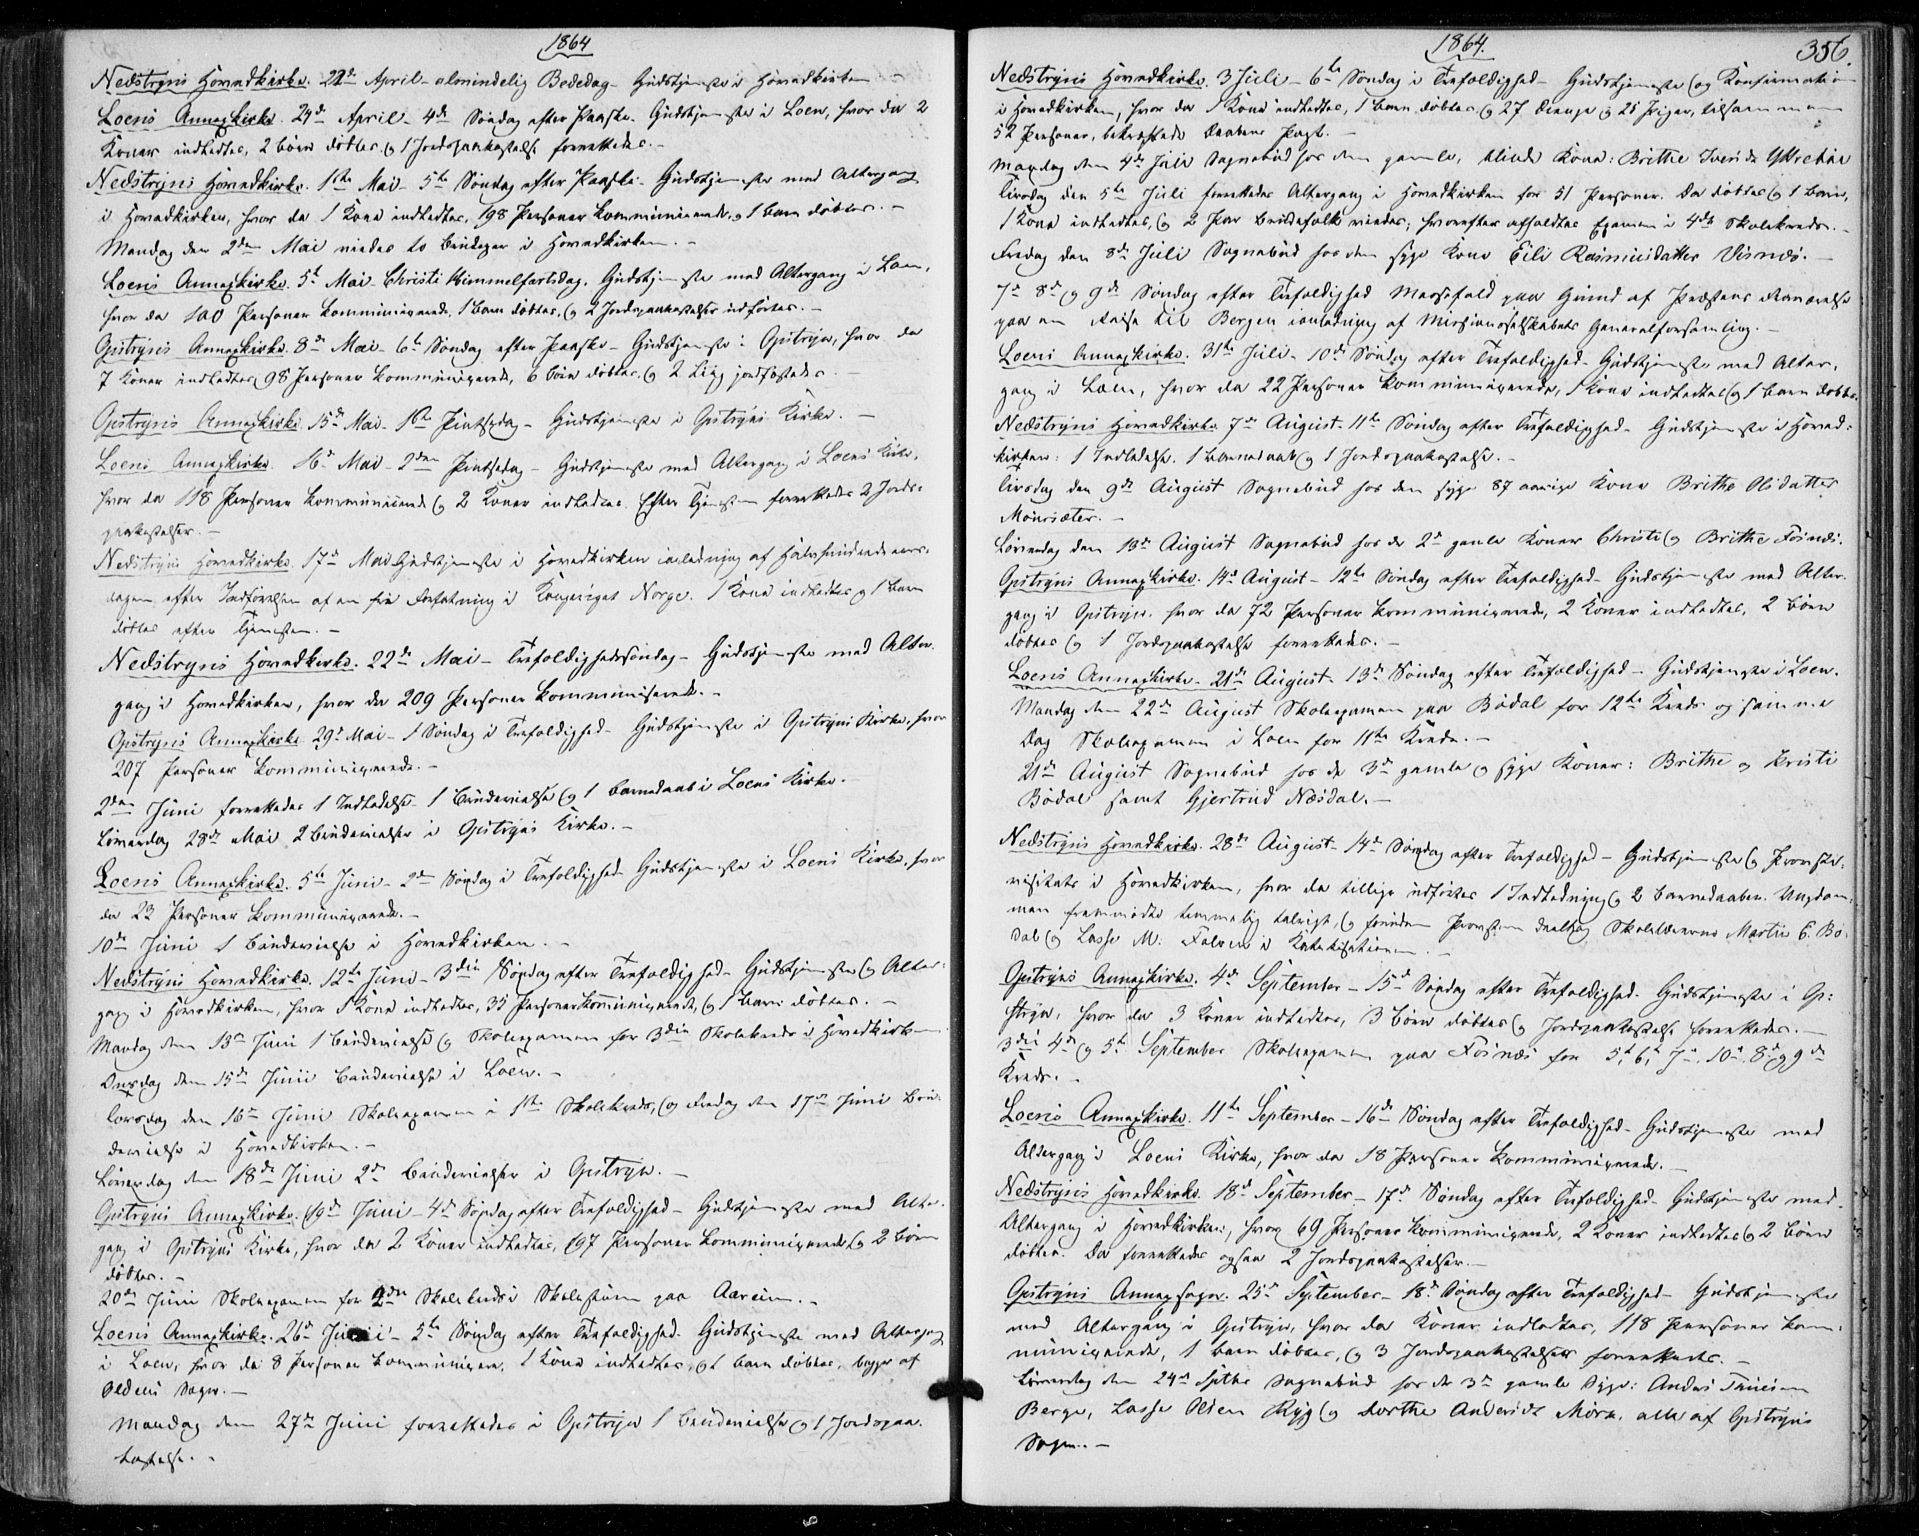 1864
Nedstryns Hovedkirke. 22de April – almindelig Bededag – Gudstjeneste i Hovedkirken –
Loens Annexkirke. 24de April – 4de Søndag efter Paaske. Gudstjeneste i Loen, hvor da 2
Koner indledtes, 2 børn døbtes og 1 Jordpaakastelse forrettedes. –
Nedstryns Hovedkirke. 1ste Mai – 5te Søndag efter Paaske – Gudstjeneste med Altergang
i Hovedkirken, hvor da 1 Kone indledtes, 198 Personer kommunicerede, og 1 barn døbtes. –
Mandag den 2den Mai viedes to brudepar i Hovedkirken. –
Loens Annexkirke. 5te Mai Christi Himmelfartsdag. Gudstjeneste med Altergang i Loen,
hvor da 100 Personer kommunicerede, 1 barn døbtes, og 2 Jordpaakastelser udførtes. –
Opstryns Annexkirke. 8de Mai – 6te Søndag efter Paaske – Gudstjeneste i Opstryn, hvor da
7 Koner indledtes, 98 Personer kommunicerede, 6 børn døbtes og 2 Liig jordfæstedes.
Opstryns Annexkirke. 15de Mai – 1ste Pintsedag – Gudstjeneste i Opstryns Kirke. –
Loens Annexkirke 16de Mai – 2den Pintsedag – Gudstjeneste med Altergang i Loens Kirke,
hvor da 118 Personer kommunicerede og 2 Koner indledtes. Efter Tjenesten forrettedes 2 Jords-
paakastelser. –
Nedstryns Hovedkirke. 17de Mai Gudstjeneste i Hovedkirken i anledning af Halvhundredeaars-
dagen efter Indførelsen af en fri Forfatning i Kongeriget Norge. 1 Kone indledtes og 1 barn
døbtes efter Tjenesten. –
Nedstryns Hovedkirke. 22de Mai – Trefoldighedssøndag – Gudstjeneste med Alter-
gang i Hovedkirken, hvor da 209 Personer kommunicerede. –
Opstryns Annexkirke 29de Mai – 1 Søndag i Trefoldighed – Gudstjeneste i Opstryns Kirke, hvor
207 Personer kommunicerede. –
2den Juni forrettedes 1 Indledelse – 1 Brudevielse og 1 barnedaab i Loens Kirke.
Løverdag 28de Mai 2 Brudevielser i Opstryns Kirke. –
Loens Annexkirke. 5te Juni – 2den Søndag i Trefoldighed Gudstjeneste i Loens Kirke, hvor
da 23 Personer kommunicerede. –
10de Juni 1 Brudevielse i Hovedkirken. –
Nedstryns Hovedkirke. 12te Juni – 3die Søndag efter Trefoldighed – Gudstjeneste og Alter-
gang i Hovedkirken, hvor 1 Kone indledtes, 35 Personer kommunicerede, og 1 barn døbtes. –
Mandag den 13de Juni 1 brudevielse og Skoleexamen for 3die Skolekreds i Hovedkirken.
Onsdag den 15de Junii brudevielse i Loen. –
Torsdag den 16de Juni Skoleexamen i 1ste Skolekreds, og Fredag den 17de Juni bru-
devielse i Hovedkirken. –
Løverdag den 18de Juni 2de brudevielser i Opstryn. –
Opstryns Annexkirke. 19de Juni – 4de Søndag efter Trefoldighed – Gudstjeneste med Alter-
gang i Opstryns Kirke, hvor da 2 Koner indledtes, 197 Personer kommunicerede og 2 børn
døbtes. –
20de Juni Skoleexamen for 2den Skolekreds i Skolestuen paa Aareim. –
Loens Annexkirke. 26de Junii – 5te Søndag efter Trefoldighed. Gudstjeneste med Altergang
i Loen, hvor da 8 Personer kommunicere, 1 Kone indledtes, og 1 barn døbtes, begge af
Oldens Sogn. –
Mandag den 27de Juni forrettedes i Opstryn 1 brudevielse og 1 Jordspaa-
kastelse. –
1864.
356.
Nedstryns Hovedkirke. 3 Juli – 6te Søndag i Trefoldighed – Gudstjeneste og Konfirmation
i Hovedkirken, hvor da 1 Kone indledtes, 1 barn døbtes og 27 Drenge og 25 Piger, tilsammen
52 Personer, bekræftede Daabens Pagt. –
Mandag den 4de Juli Sognebud hos den gamle, blinde Kone: Brithe Iversdt Ytreeide
Tirsdag den 5te Juli forrettedes Altergang i Hovedkirken for 51 Personer. Da døbtes og 1 barn,
1 Kone indledtes, og 2 Par Brudefolk viedes; hvorefter afholdtes Examen i 4de Skolekreds. –
Fredag den 8de Juli Sognebud hos den syge Kone Eili Rasmusdatter Visnæs. –
7de 8de og 9de Søndag efter Trefoldighed Messefald paa Grund af Præstens Fraværelse
paa en Reise til Bergen i anledning af Missionsselskabets Generalforsamling. –
Loens Annexkirke. 31te Juli – 10de Søndag efter Trefoldighed – Gudstjeneste med Alter-
gang i Loen, hvor da 22 Personer kommunicerede, 1 kone indledtes og 1 barn døbtes.
Nedstryns Hovedkirke 7de August – 11te Søndag efter Trefoldighed – Gudstjeneste i Hoved-
kirken: 1 Indledelse. 1 barnedaab og 1 Jordspaakastelse. –
Tirsdag den 9de August Sognebud hos den syge 87 aarige Kone Brithe Olsdatter
Monsæter. –
Løverdag den 13de August Sognebud hos de 2de gamle Koner Christi og Brithe Fosnæs.
Opstryns Annexkirke. 14de August – 12te Søndag efter Trefoldighed – Gudstjeneste med Alter-
gang i Opstryn, hvor da 72 Personer kommunicerede, 2 Koner indledtes, 2 børn
døbtes og 1 Jordspaakastelse forrettedes. –
Loens Annexkirke – 21de August – 13de Søndag efter Trefoldighed – Gudstjeneste i Loen.
Mandag den 22de August Skoleexamen paa Bødal for 12te Kreds og samme
Dag Skoleexamen i Loen for 11te Kreds. –
21de August Sognebud hos de 3de gamle og syge Koner: Brithe og Kristi
Bødal samt Gjertrud Næsdal. –
Nedstryns Hovedkirke. 28de August – 14de Søndag efter Trefoldighed – Gudstjeneste og Provste-
visitats i Hovedkirken, hvor da tillige udførtes 1 Indledning og 2 barnedaaber. Ungdom-
men fremmødte temmelig talrigt, og foruden Provsten deeltog Skolelærerne Martin E. Bø-
dal og Lasse M. Folven i Katekisationen. –
Opstryns Annexkirke. 4de September – 15de Søndag efter Trefoldighed. Gudstjeneste i Op-
stryn, hvor da 3 Koner indledtes, 3 børn døbtes og Jordspaakastelse forrettedes. –
3die 4de og 5te September Skoleexamen paa Fosnæs for 5te, 6te, 7de, 10de, 8de og 9de
Kreds. –
Loens Annexkirke. 11te September – 16de Søndag efter Trefoldighed – Gudstjeneste med
Altergang i Loens Kirke, hvor da 18 Personer kommunicerede. –
Nedstryns Hovedkirke. 18de September – 17de Søndag efter Trefoldighed – Gudstjeneste med
Altergang i Hovedkirken, hvor 69 Personer kommunicerede, 2 Koner indledtes og 2 børn
døbtes. Da forrettedes ogsaa 2 Jordspaakastelser. –
Opstryns Annexsogn. 25de September – 18de Søndag efter Trefoldighed – Gudstjeneste
med Altergang i Opstryn, hvor da Koner indledtes, 118 Personer kom-
municerede, 1 barn døbtes, og 3 Jordspaakastelser forrettedes. –
Løverdag den 24de Septbr Sognebud hos de 3de gamle Syge: Anders
Berge, Lasse Olsen Ryg og Dorthe Andersdt Mork, alle af Opstryns
Sogn. –